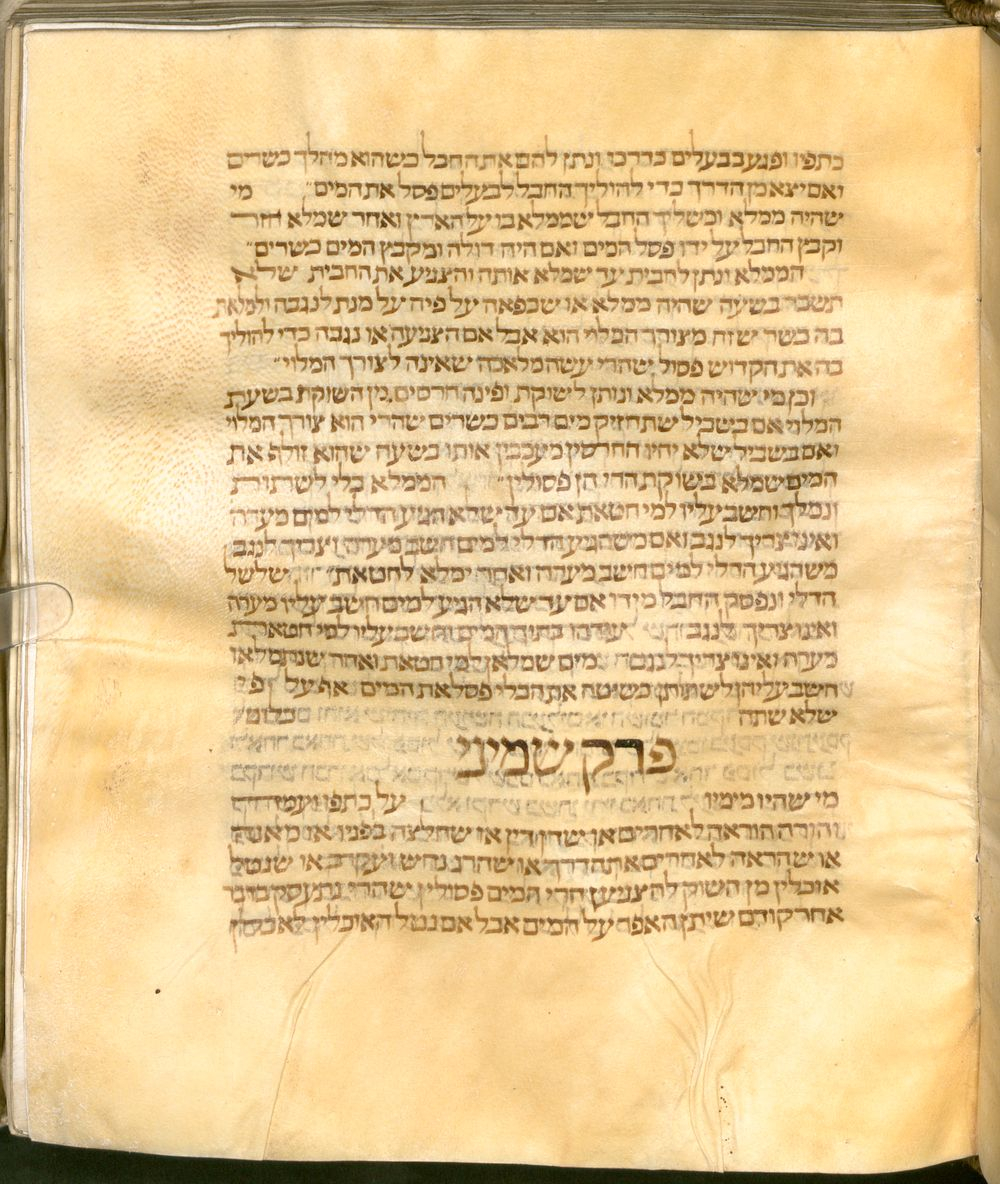 כתפיו ופגע בבעלים בדרכו ונתן להם את החבל כשהוא מהלך כשרים
ואם יצא מן הדרך כדי להוליך החבל לבעלים פסל את המים״ מי
שהיה ממלא ומשליך החבל שממלא בו על הארץ ואחר שמלא חזר
וקבץ החבל על ידו פסל המים ואם היה דולה ומקבץ המים כשרים״
הממלא ונתן לחבית עד שמלא אותה והצניע את החבית שלא
תשבר בשעה שהיה ממלא או שכפאה על פיה על מנת לנגבה ולמלאת
בה כשר שזה מצורך המלוי הוא אבל אם הצניעה או נגבה כדי להוליך
בה את הקדוש פסול שהרי עשה מלאכה שאינה לצורך המלוי״
וכן מי שהיה ממלא ונותן לשוקת ופינה חרסים מן השוקת בשעת
המלוי אם בשביל שתחזיק מים רבים כשרים שהרי הוא צורך המלוי
ואם בשביל שלא יהיו החרסין מעכבין אותו בשעה שהוא זולף את
המים שמלא בשוקת הרי הן פסולין״ הממלא כלי לשתות
ונמלך וחשב עליו למי חטאת אם עד שלא הגיע הדלי למים מערה
ואינו צריך לנגב ואם משהגיע הדלי למים חשב מערה וצריך לנגב
משהגיע הדלי למים חשב מערה ואחר ימלא לחטאת״ שלשל
הדלי ונפסק החבל מידו אם עד שלא הגיע למים חשב עליו מערה
ואינו צריך לנגב עודהו בתוך המים וחשב עליו למי חטאת
מערה ואינו צריך לנגב מים שמלאן למי חטאת ואחר שנתמלאו
חשב עליהן לשתותן כשיטה את הכלי פסל את המים אף על פי
שלא שתה כלום״
פרק שמיני
מי שהיו מימיו על כתפו ועמד
והורה הוראה לאחרים או שהן דין או שחלצה בפניו או מאנה
או שהראה לאחרים את הדרך או שהרג נחש ועקרב או שנטל
אוכלין מן השוק להצניען הרי המים פסולין שהרי נתעסק בדבר
אחר קודם שיתן האפר על המים אבל אם נטל האוכלין לאכלן